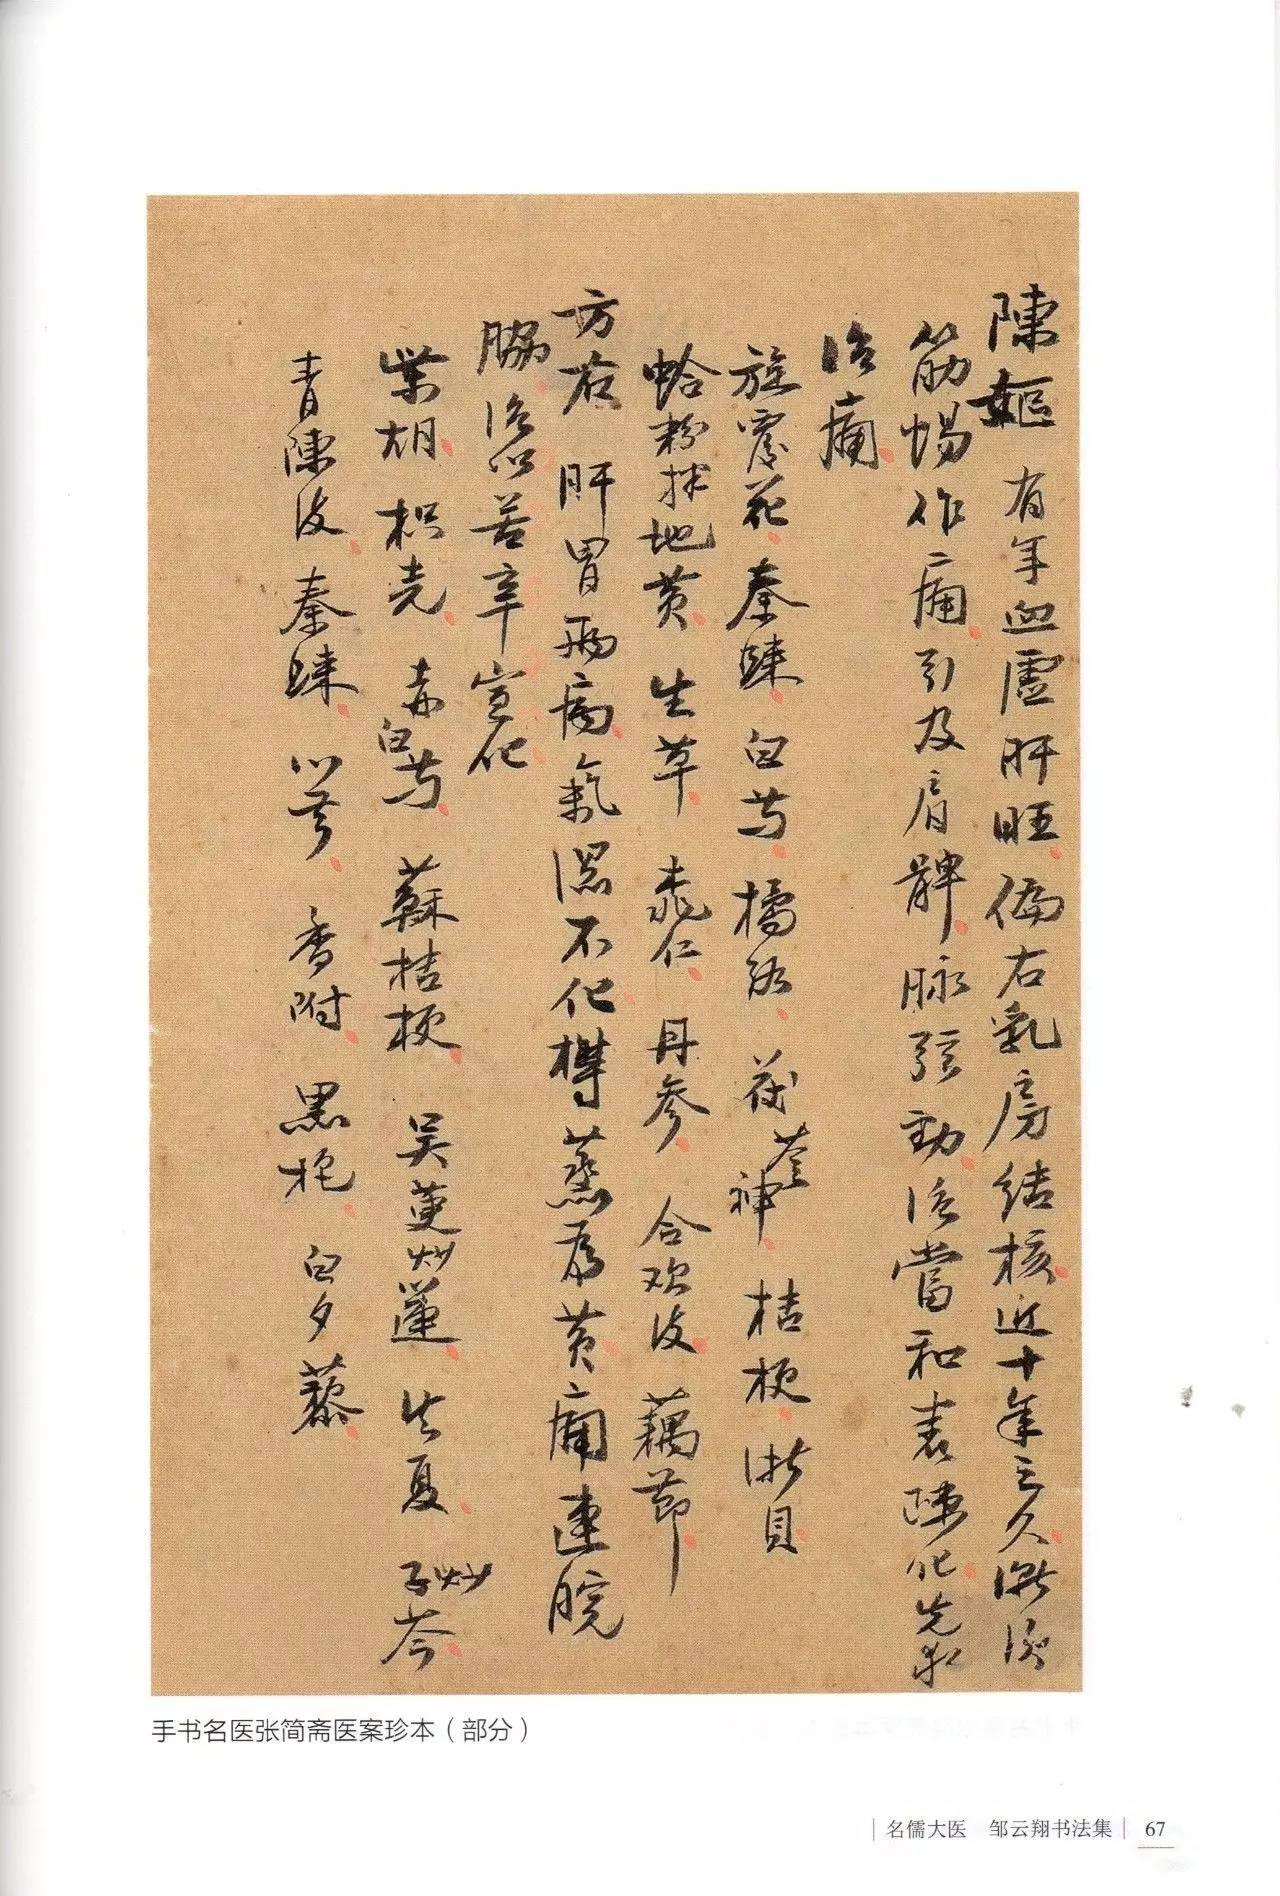 陳嫗 有年血虛肝旺偏右乳房結核近十年之久漸漸
筋惕作痛引及肩髀脉弦動治當和養陳化先求
治痛
旋覆花 秦歸 白芍 橘絡 茯苓神 桔梗 浙貝
蛤粉拌地黄 生草 桃仁 丹參 合欢皮 藕節
方右 肝胃兩病氣濕不化構蒸為黄痛連脘
脇治以苦辛宣化
柴胡 枳壳 赤白芍 蘇桔梗 吴萸炒蓮 生夏 子炒芩
青陳皮 秦歸 川芎 香附 黑栀 白夕藜
手书名医张简斋医案珍本（部分）
名儒大医 邹云翔书法集 67